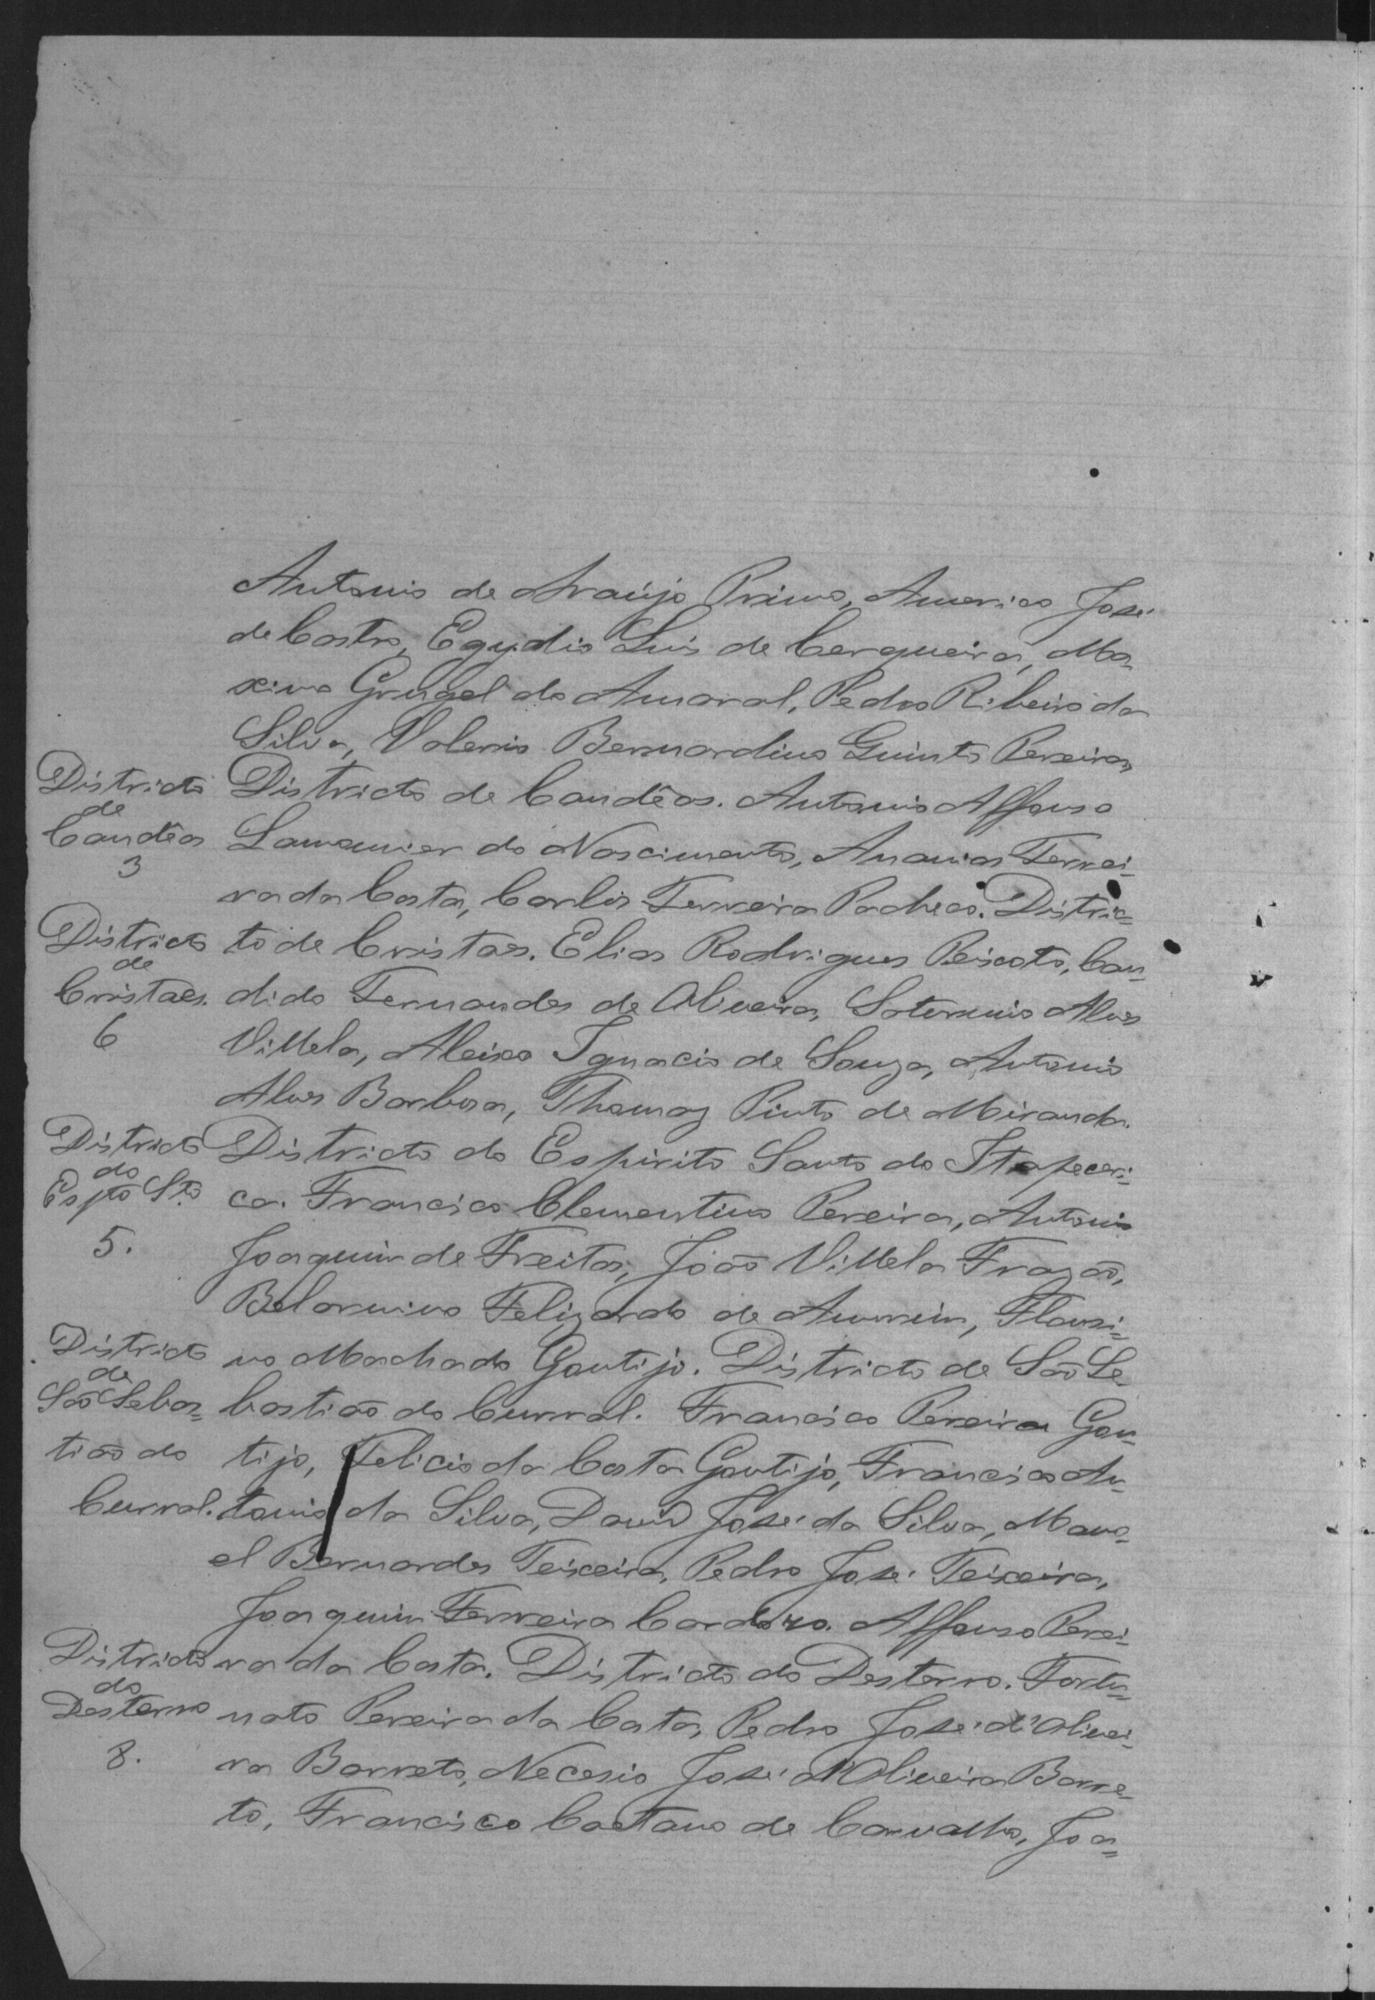 Antonio de Araujo Primo, Americo José
de Castro, Egydio Luis de Cerqueira, Ma-
ximo Gurgel do Amaral, Pedro Ribeiro da
Silva, Valerio Bernardino Quinto Pereira,
Districto
de
Candêas
3
Districto de Candêas. Antonio Affonso
Lamounier do Nascimento, Ananias Ferrei=
ra da Costa, Carlos Ferreira Pacheco. Distric=
Districto
de
Cristaes.
6
to de Cristaes. Elias Rodrigues Peixoto, Can=
dido Fernandes de Oliveira, Saternino Alves
Villela, Aleixo Ignacio de Souza, Antonio
Alves Barbosa, Thomaz Pinto de Miranda.
Districto
do
Espto Sto
5.
Districto do Espirito Santo do Itapeceri=
ca. Francisco Clementino Pereira, Antonio
Joaquim de Freitas, João Villela Frazão,
Belarmino Felizardo de Amorim, Flausi=
Districto
de
São Sebas=
tião do
Curral.
no Machado Gontijo. Districto de São Se=
bastião do Curral. Francisco Pereira Gon=
tijo, Felicio da Costa Gontijo, Francisco An=
tonio da Silva, David José da Silva, Mano=
el Bernardes Teixeira, Pedro José Teixeira,
Joaquim Ferreira Cardozo. Affonso Perei=
Districto
do
Desterro
8.
ra da Costa. Districto do Desterro. Fortu=
nato Pereira da Costa, Pedro José d'Olivei=
ra Barreto, Necesio José d'Oliveira Barre=
to, Francisco Caetano de Carvalho, Joa=